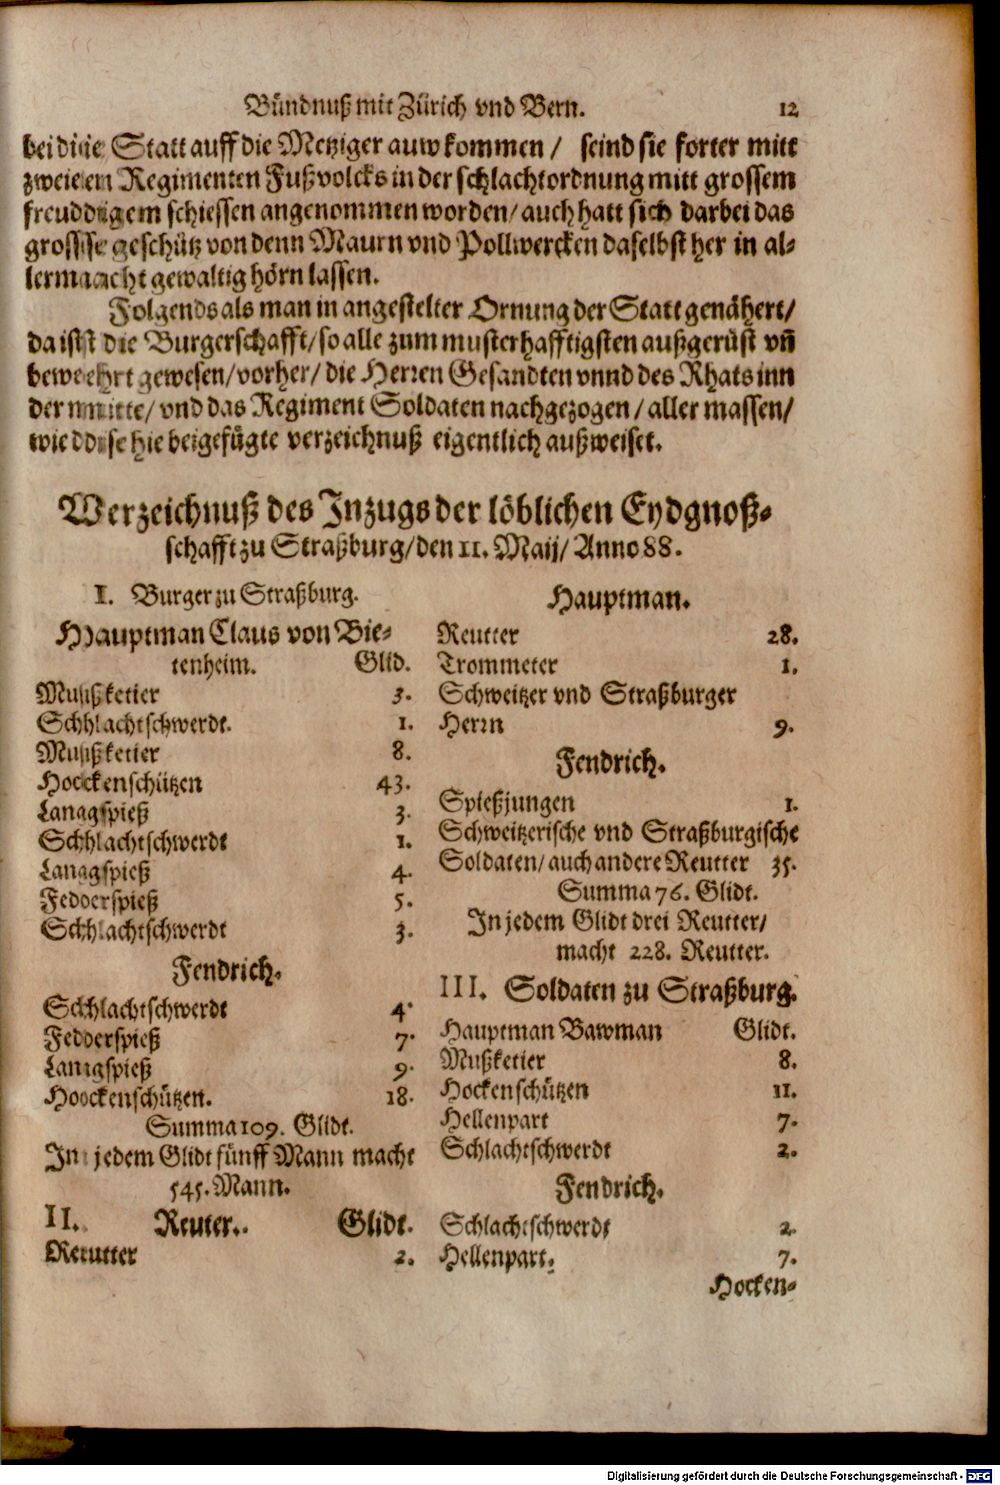 Bündnuß mit Zürich vnd Bern. 12
bei die Statt auff die Metziger auw kommen / seind sie forter mitt
zweien Regimenten Fußvolcks in der schlachtordnung mitt grossem
freuddigem schiessen angenommen worden / auch hatt sich darbei das
grosse geschütz von denn Maurn vnd Pollwercken daselbst her in al-
lermacht gewaltig hörn lassen.
Folgends als man in angestelter Ornung der Statt genähert /
da ist die Burgerschafft / so alle zum musterhafftigsten außgerüst vñ
bewehrt gewesen / vorher / die Herren Gesandten vnnd des Rhats inn
der mitte / vnd das Regiment Soldaten nachgezogen / aller massen /
wie dise hie beigefügte verzeichnuß eigentlich außweiset.
Verzeichnuß des Inzugs der löblichen Eydgnoß-
schafft zu Straßburg / den 11. Maij / Anno 88.
I. Burger zu Straßburg.
Hauptman Claus von Bie-
tenheim. Glid.
Mußketier 3.
Schlachtschwerdt. 1.
Mußketier 8.
Hockenschützen 43.
Langspieß 3.
Schlachtschwerdt 1.
Langspieß 4.
Fedderspieß 5.
Schlachtschwerdt 3.
Fendrich.
Schlachtschwerdt 4.
Fedderspieß 7.
Langspieß 9.
Hockenschützen. 18.
Summa 109. Glidt.
In jedem Glidt fünff Mann macht
545. Mann.
II. Reuter. Glidt.
Reutter 2.
Hauptman.
Reutter 28.
Trommeter 1.
Schweitzer vnd Straßburger
Herrn 9.
Fendrich.
Spießjungen 1.
Schweitzerische vnd Straßburgische
Soldaten / auch andere Reutter 35.
Summa 76. Glidt.
In jedem Glidt drei Reutter /
macht 228. Reutter.
III. Soldaten zu Straßburg.
Hauptman Bawman Glidt.
Mußketier 8.
Hockenschützen 11.
Hellenpart 7.
Schlachtschwerdt 2.
Fendrich.
Schlachtschwerdt 2.
Hellenpart. 7.
Hocken-
Digitalisierung gefördert durch die Deutsche Forschungsgemeinschaft - DFG